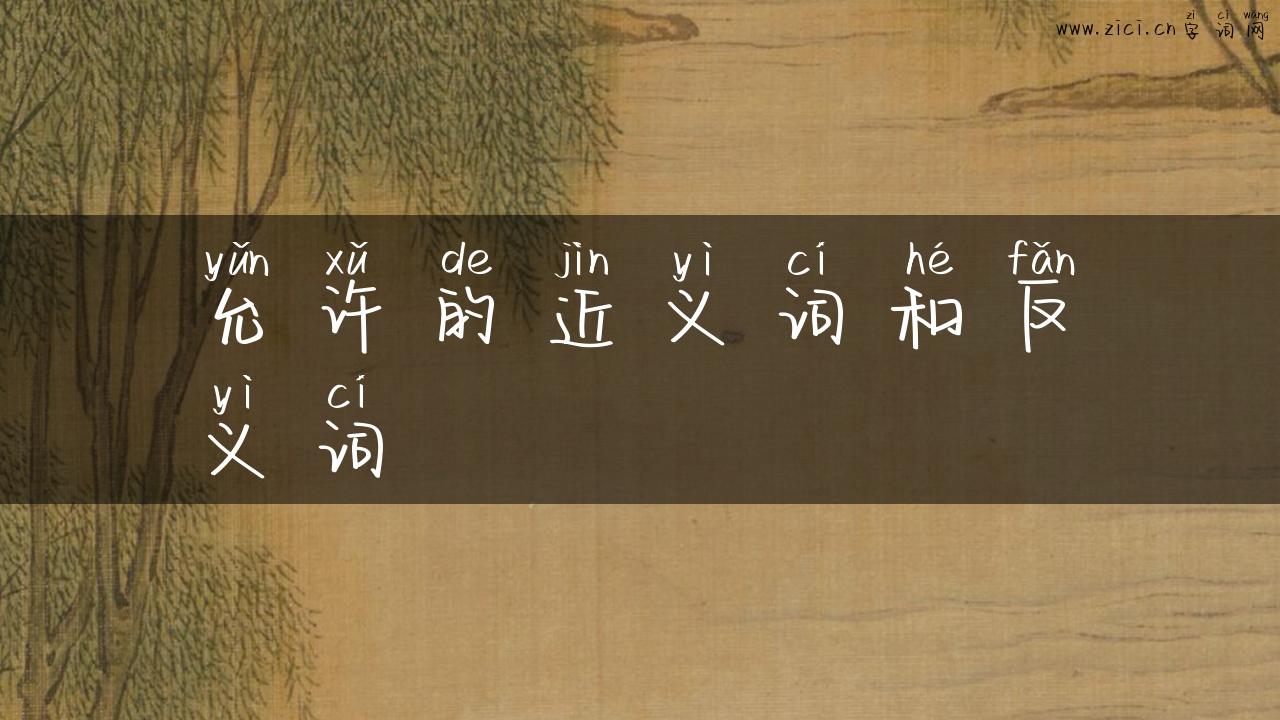 zì cí wǎng
www.zici.cn 字词网
yǔn xǔ de jìn yì cí hé fǎn
允许的近义词和反
yì cí
义词